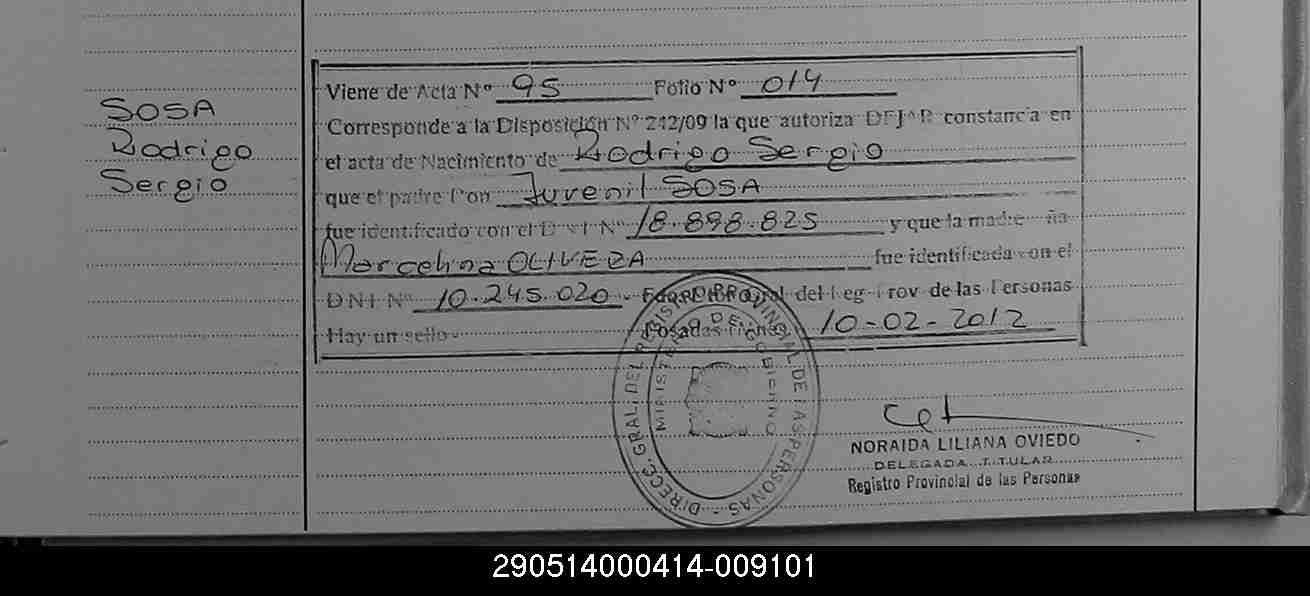 SOSA
Rodrigo
Sergio
Viene de Acta Nº 95 Folio Nº 014
Corresponde a la Disposición Nº 242/09 la que autoriza constancia en
el acta de Nacimiento de Rodrigo Sergio
que el padre Don Juvenil SOSA
fue identificado con el D N I Nº 18.898.825 y que la madre ña
Marcelina OLIVERA fue identificada con el
DNI Nº 10.245.020 del Reg Prov de las Personas
Hay un sello Posadas 10-02-2012
DIRECC. GRAL. DEL REGISTRO PROVINCIAL DE LAS PERSONAS
MINISTERIO DE GOBIERNO
NORAIDA LILIANA OVIEDO
DELEGADA TITULAR
Registro Provincial de las Personas
290514000414-009101